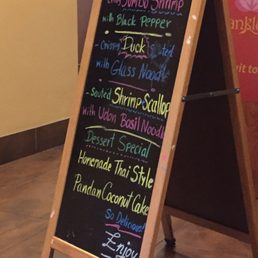 Jumbo Shrimp
with Black Pepper
Duck
with Glass Noodle
- Sauted Shrimp-Scallop
with Udon Basil Noodle
Dessert Special
Homenade Thai Style
Pandan Coconut Cake
So Delicious!
Enjoy